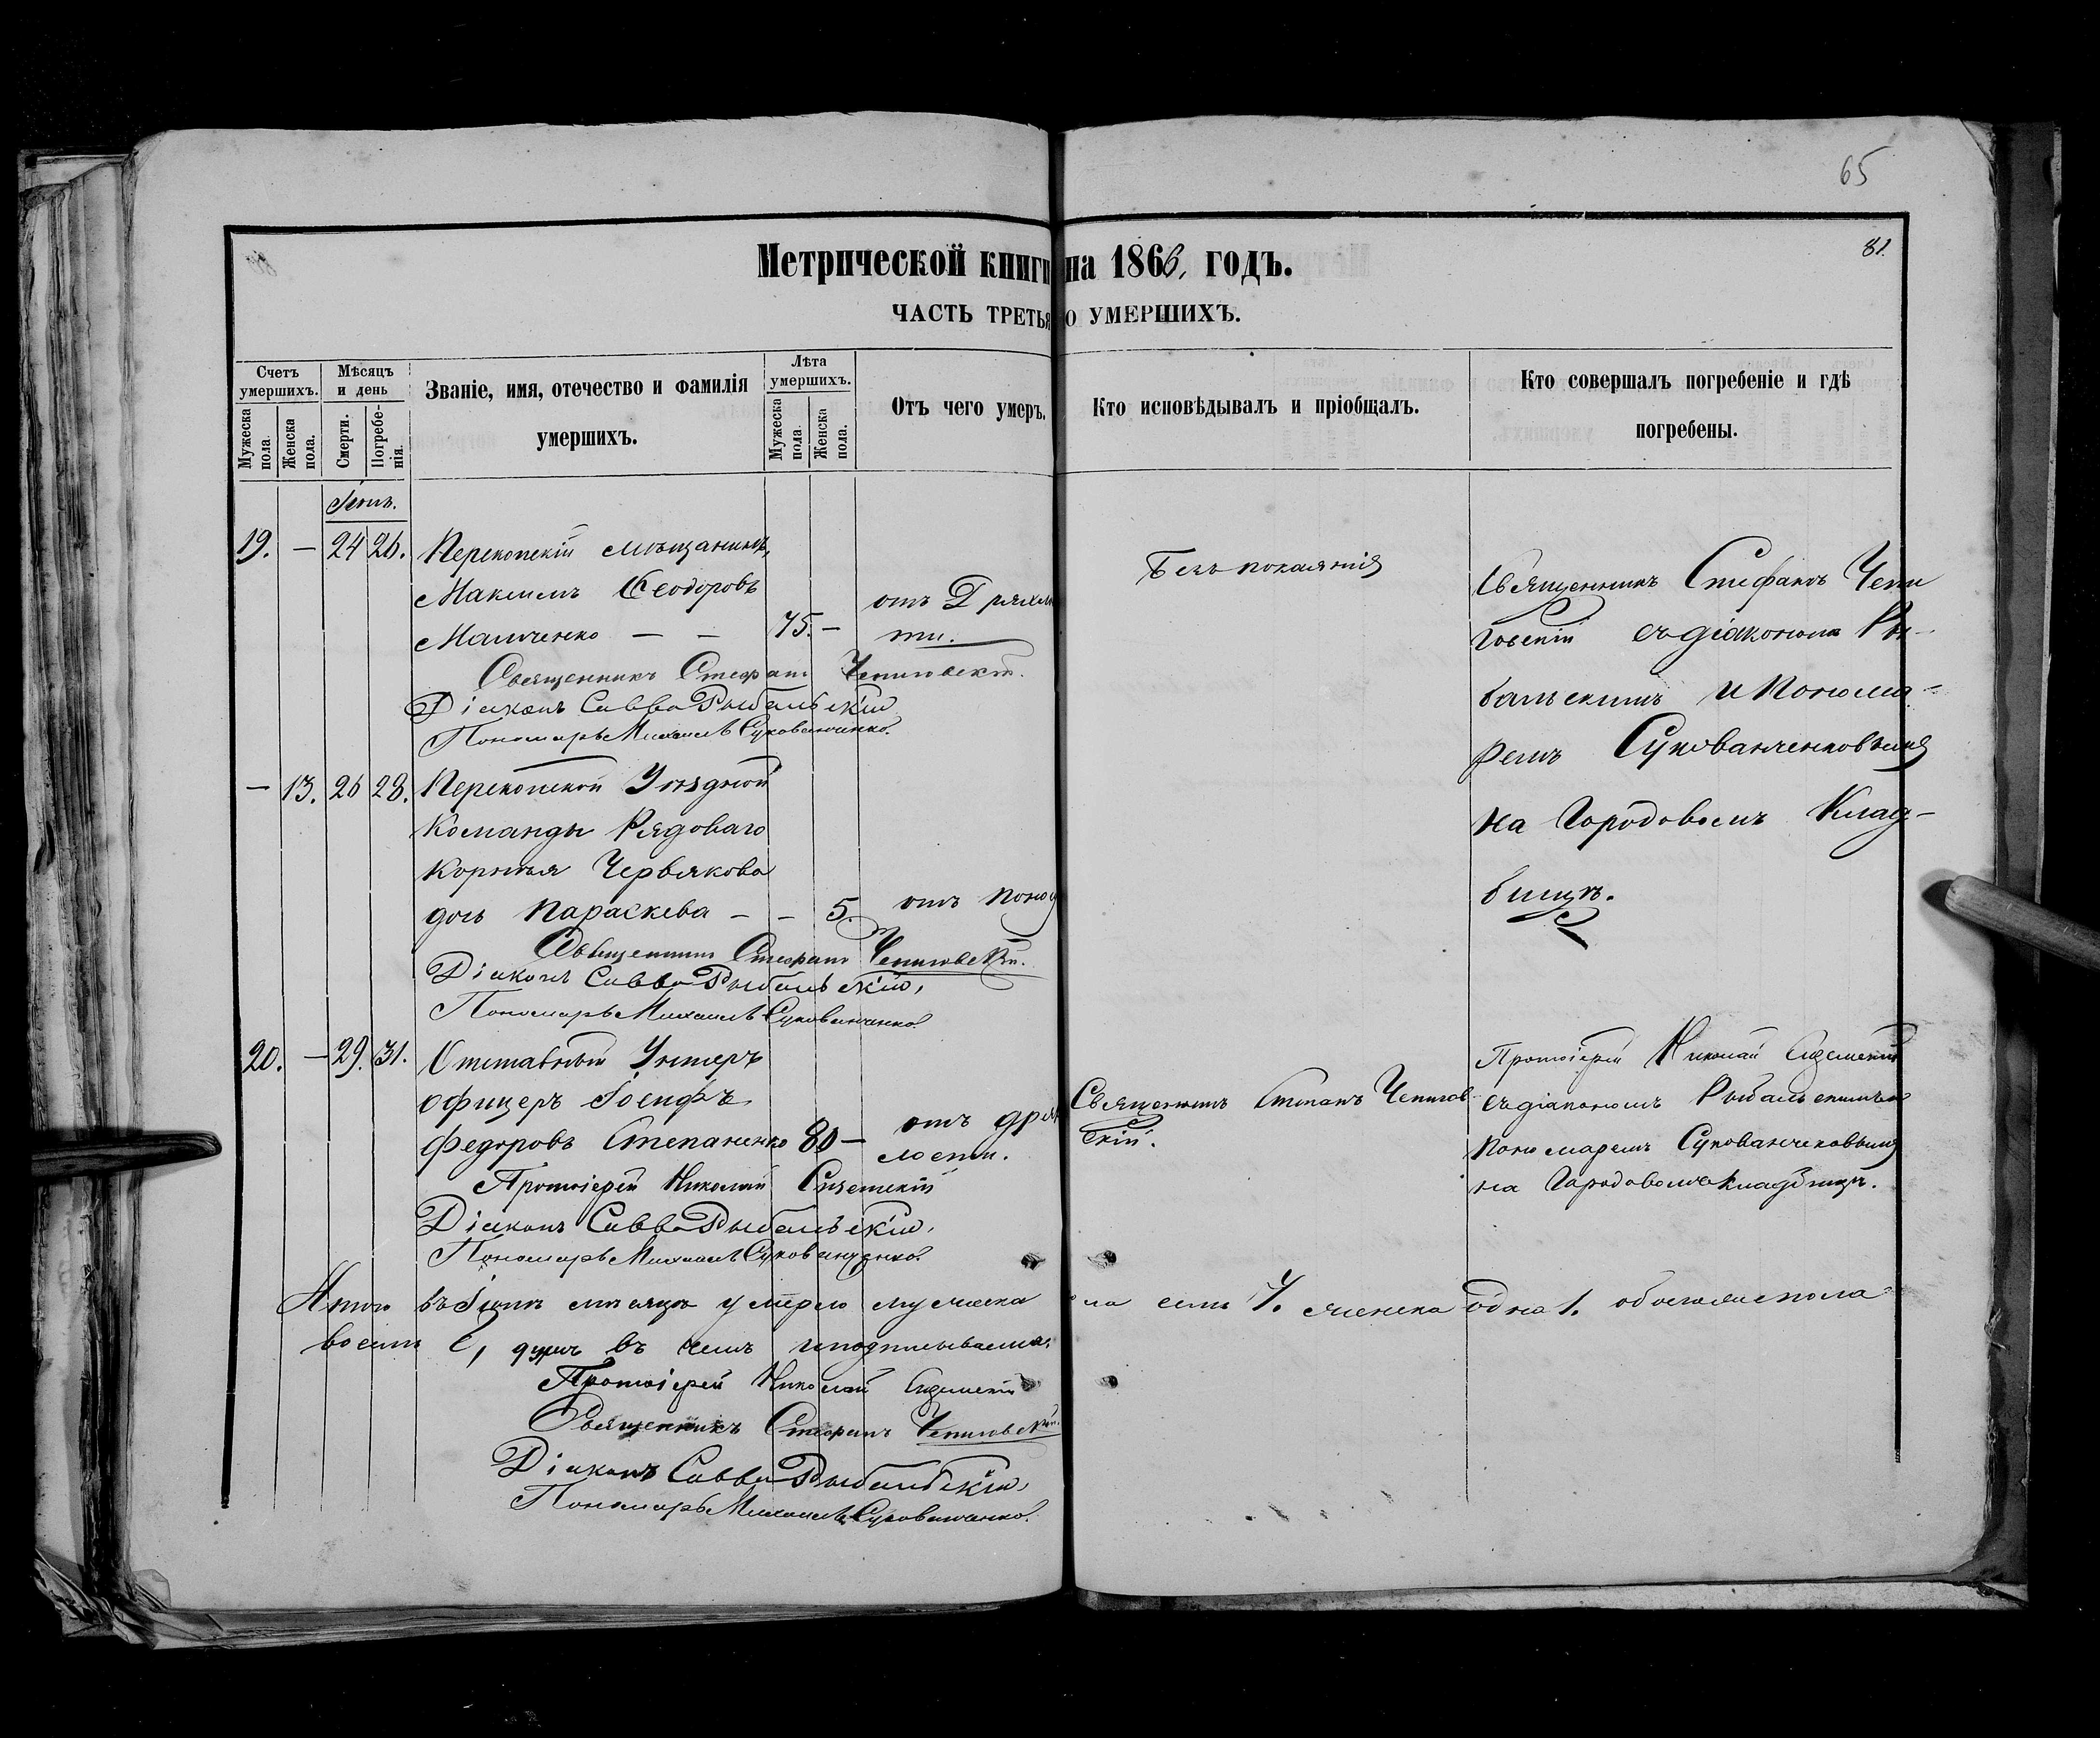 65
81.
Метрической книги на 1866, годъ.
ЧАСТЬ ТРЕТЬЯ О УМЕРШИХЪ.
Счетъ умершихъ.
Мужеска пола.
Женска пола.
Мѣсяцъ и день
Смерти.
Погребенія.
Званіе, имя, отечество и фамилія
умершихъ.
Лѣта умершихъ.
Мужеска пола.
Женска пола.
Отъ чего умеръ.
Кто исповѣдывалъ и пріобщалъ.
Кто совершалъ погребеніе и гдѣ
погребены.
19. — 24 26. Перекопскій мѣщанинъ,
Максимъ Ѳеодоровъ
— — 75. —
отъ Дряхло
сти.
Безъ покаянія
Священникъ Стефанъ Чепи
говскій съ діакономъ Ры-
бальскимъ и Понома-
ремъ Сукованченковымъ
на Городовомъ Клад-
бищѣ.
Священникъ Стефанъ Чепиговскій.
Діаконъ Савва Рыбальскій
Пономарь Михаилъ Сукованченко.
— 13. 26 28. Перекопской Уѣздной
Команды Рядоваго
Корнѣя Червякова
дочь Параскева — — 5. отъ поноса
Священникъ Стефанъ Чепиговскій.
Діаконъ Савва Рыбальскій,
Пономарь Михаилъ Сукованченко.
20. — 29. 31. Отставный Унтеръ
офицеръ Іосифъ
Федоровъ Степаненко 80 —
отъ дрях
лости.
Священникъ Стефанъ Чепигов-
скій.
Протоіерей Николай
съ діакономъ Рыбальскимъ и
пономаремъ Сукованченковымъ
на Городовомъ Кладбищѣ.
Протоіерей Николай
Діаконъ Савва Рыбальскій,
Пономарь Михаилъ Сукованченко.
Итого въ мѣсяцѣ умерло мужеска пола семь 7. женска одна 1. обоего пола
восемь 8, душъ въ чемъ и подписываемся.
Протоіерей Николай
Священникъ Стефанъ Чепиговскій.
Діаконъ Савва Рыбальскій,
Пономарь Михаилъ Сукованченко.